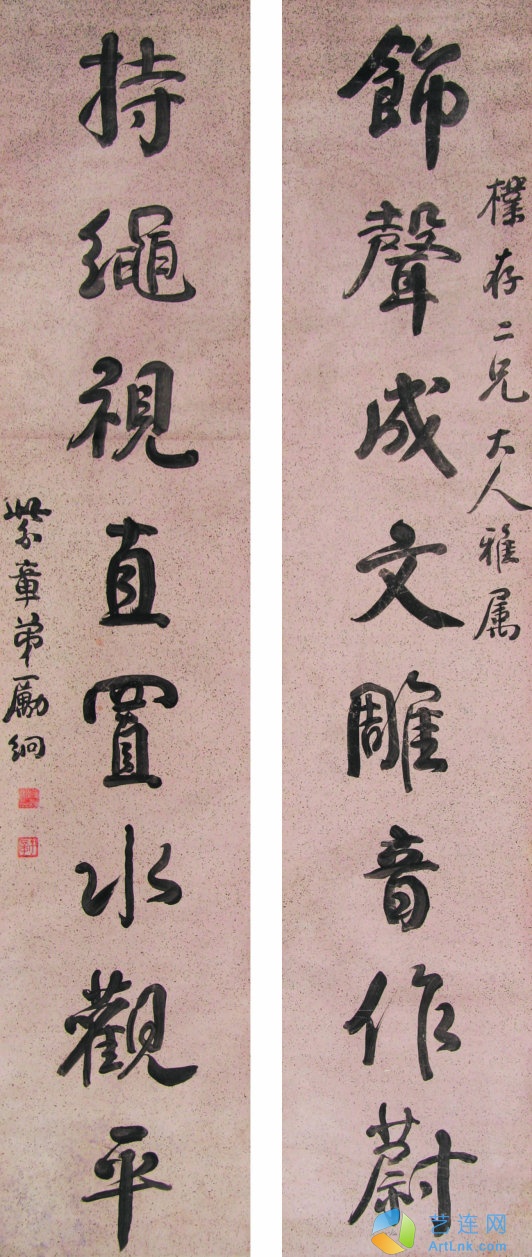 樸存二兄大人雅属
飾聲成文雕音作蔚
持繩視直置水觀平
紫章弟勵絅
艺连网
ArtLnk.com